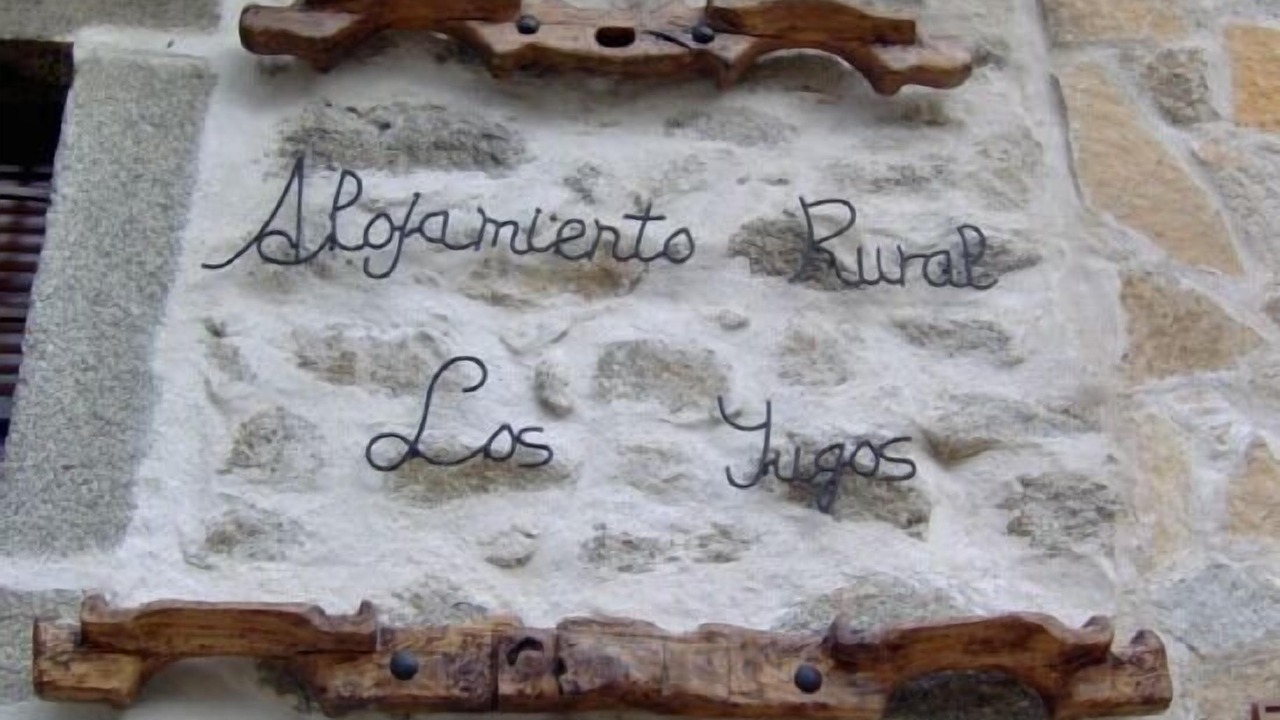 Alojamiento Rural
Los Yugos